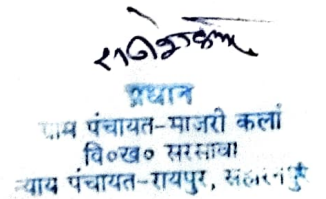 राजेश कुमार
प्रधान
ग्राम पंचायत-माजरी कलां
वि०ख० सरसावा
न्याय पंचायत-रायपुर, सहारनपुर